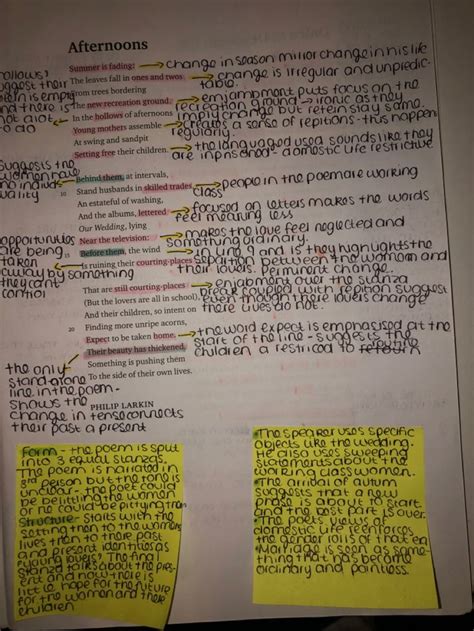 Afternoons
Summer is fading:
The leaves fall in ones and twos
From trees bordering
The new recreation ground.
In the hollows of afternoons
Young mothers assemble
At swing and sandpit
Setting free their children.
Behind them, at intervals,
10 Stand husbands in skilled trades,
An estateful of washing,
And the albums, lettered
Our Wedding, lying
Near the television:
15 Before them, the wind
Is ruining their courting-places
That are still courting-places
(But the lovers are all in school),
And their children, so intent on
20 Finding more unripe acorns,
Expect to be taken home.
Their beauty has thickened.
Something is pushing them
To the side of their own lives.
PHILIP LARKIN
change in season mirror change in his life
change is irregular and unpredic-
table.
enjambment puts focus on the
recreation ground → ironic as they
imply change but retein stay same.
creates a sense of repitions - thus happen
regularly
the languaged used sounds like they
are inprisoned - domestic life restrictive
people in the poem are working
class
focused on letters makes the words
feel meaning less
makes the love feel neglected and
something ordinary.
in line 9 and 15 they highlights the
seperation between the woman and
their lovers. Perminent change.
enjabment over the stanza
break coupled with repition suggest
even though there lovers change
there lives do not.
the word expect is emphasised at the
start of the line - suggests the
children a restriced to
hollows'
suggest their
is empty
and there is
not alot
to do
suggests the
women have
no individ
uality
opportunites
are being
taken
away by something
they cant
control
the only
stand alone
line in the poem -
shows the
change in tense connects
their past a present
Form - the poem is split
into 3 equal stanzas.
The poem is narrated in
3rd person but the tone is
unclear. the poet could
be belittling the women
or he could be pitying them
Structure - starts with the
setting then to the womens
lives then to there past
and present identities as
young lovers. The final
stanza talks about the pres-
ent and how there is
little hope for the future
for the women and there
children
The speaker uses specific
objects like the wedding.
He also uses sweeping
statements about the
working class women.
The arrival of autum
suggests that a new
phase is about to start
and the best part is over.
The poets views of
domestic life reinforces
the gender rolls of that era
Marriage is seen as some-
thing that has become
ordinary and pointless.